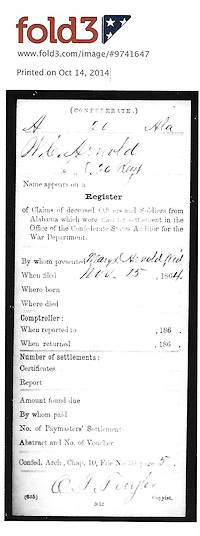 fold3
www.fold3.com/image/#9741647
Printed on Oct 14, 2014
(CONFEDERATE.)
A 20 Ala
W. C. Arnold
Name appears on a
Register
of Claims of deceased Officers and Soldiers from
Alabama which were filed for settlement in the
Office of the Confederate States Auditor for the
War Department.
By whom presented Mary Arnold wid
When filed Nov. 15, 1864
Where born
Where died
Comptroller:
When reported to , 186 .
When returned , 186 .
Number of settlements:
Certificates
Report
Amount found due
By whom paid
No. of Paymasters' Settlements
Abstract and No. of Voucher
Confed. Arch., Chap. 10, File No. page 5.
(635) Copyist.